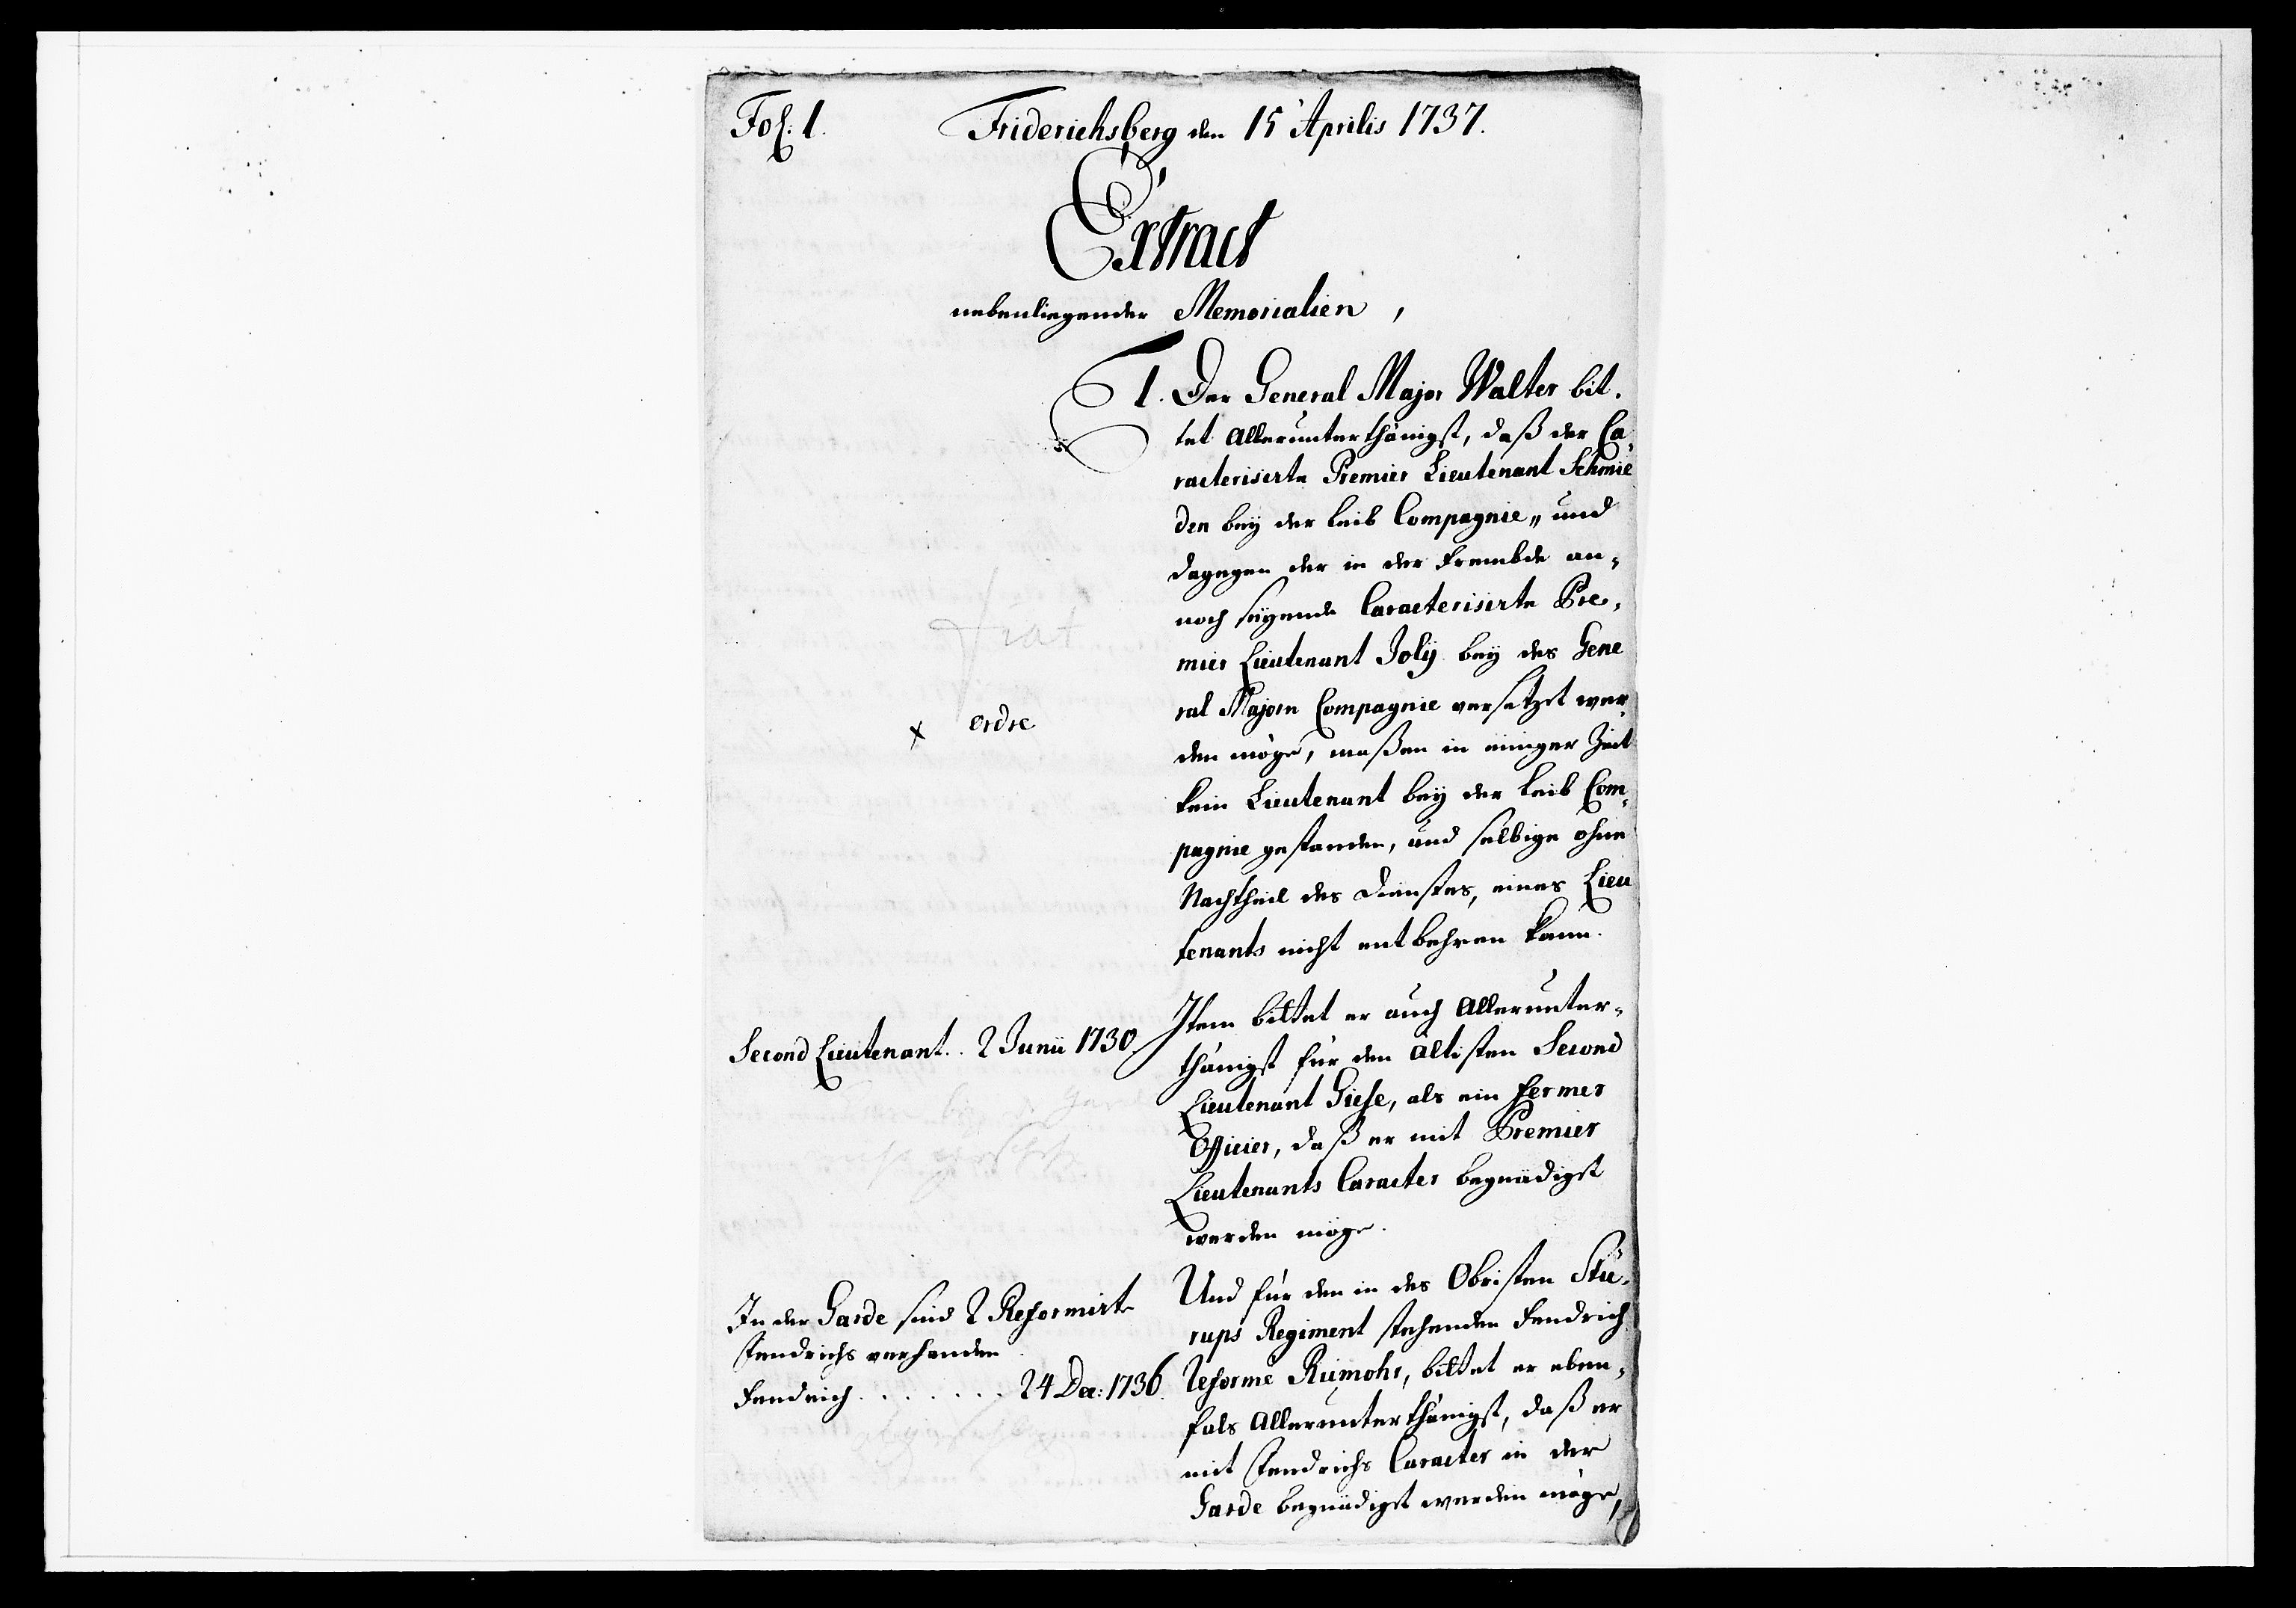 Fol: 1.
Friderichsberg den 15 Aprilis 1737.
Extract
nebenliegender Memorialien,
1. Der General Major Walter bit-
tet Allerunterthänigst, daß der Ca-
racterisirte Premier Lieutenant Schmie
den bey der Leib Compagnie, und
dagegen der in der Frembde an-
noch seyende Caracterisirte Pre-
mier Lieutenant Joly bey des Gene
ral Majorn Compagnie versetzet wer-
den möge, maßen in einiger Zeit
kein Lieutenant bey der Leib Com-
pagnie gestanden, und selbige ohne
Nachtheil des Dienstes, eines Lieu
tenants nicht entbehren kann.
fiat
x ordre
Second Lieutenant.. 2 Junii 1730.
Item bittet er auch Allerunter-
thänigst für den ältisten Second
Lieutenant Giese, als ein fermer
Officier, daß er mit Premier
Lieutenants Caracter begnädigt
werden möge.
In der Garde sind 2 Reformirte
Fendrichs verhanden
Fendrich . . . . . . . 24 Dec: 1736.
Und für den in des Obristen Stü-
rups Regiment stehenden Fendrich
Reformé Rumohr, bittet er eben-
fals Allerunterthänigst, daß er
mit Fendrichs Caracter in der
Garde begnädigt werden möge,